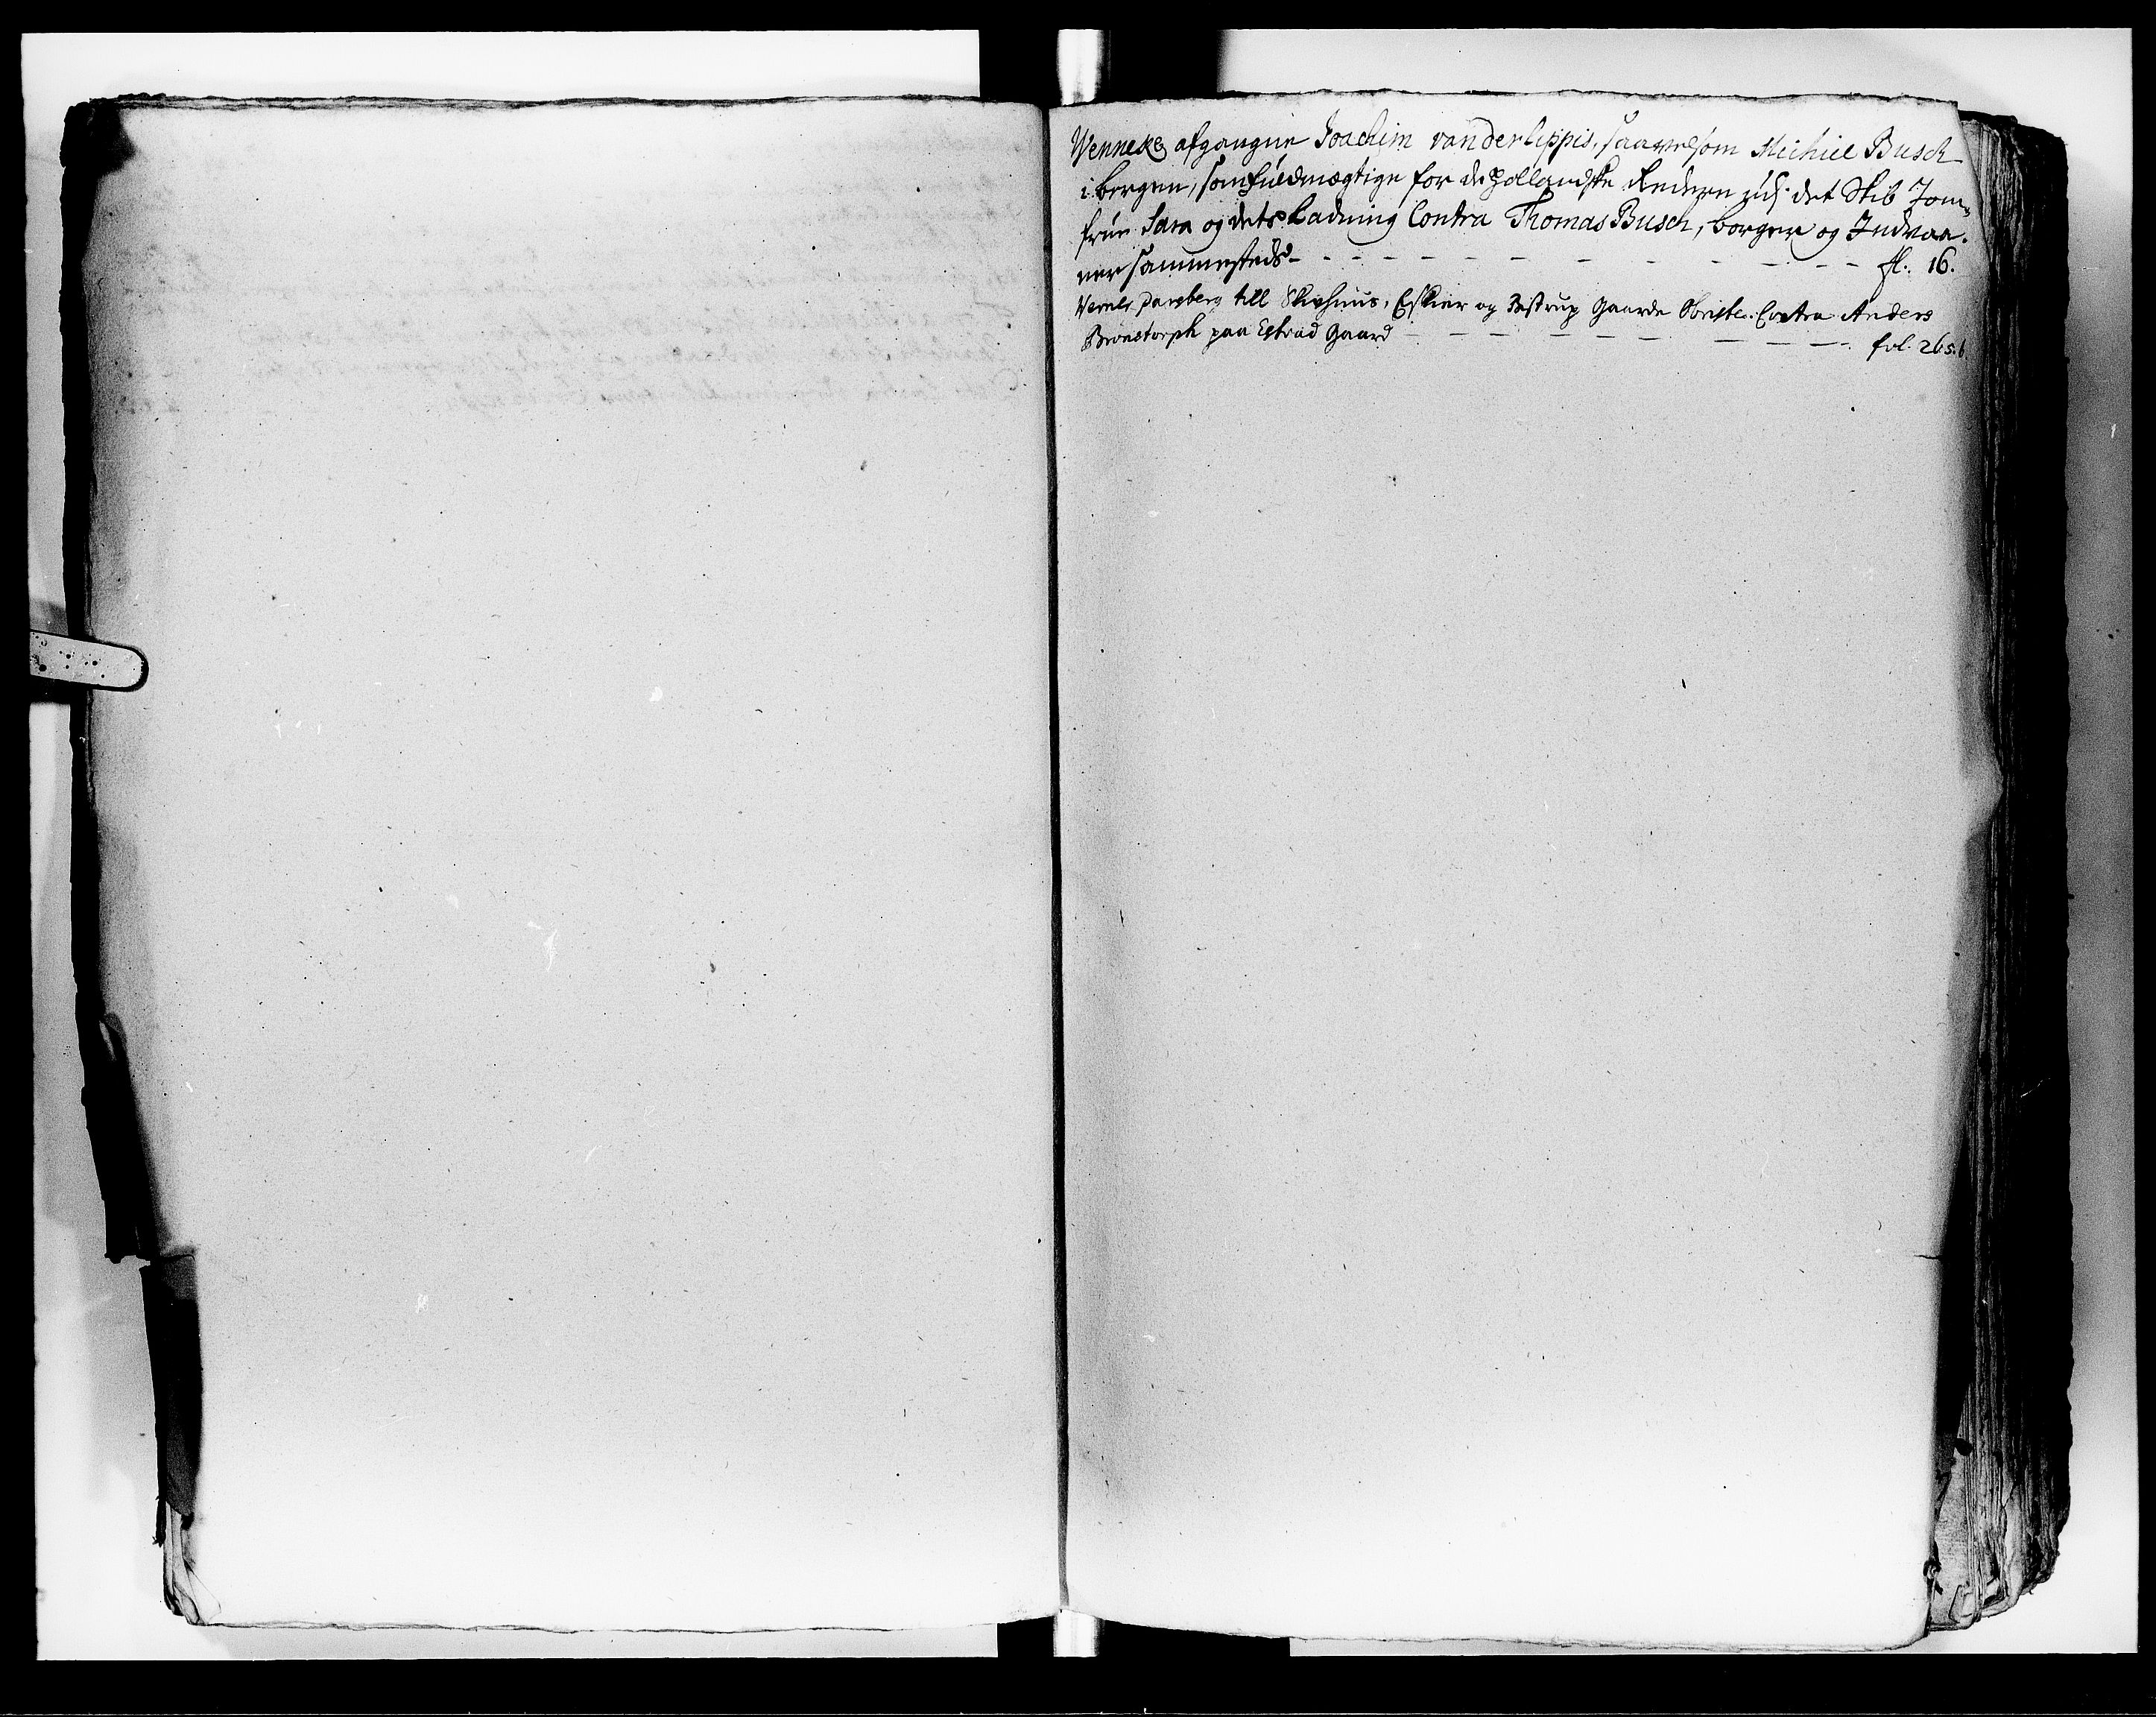 Wenneke afgangne Joachim vanderlippis, saavelsom Michiel Busch
i bergen, som fuldmægtige for de Hollandske Redere udj det Skib Jom-
frue Sara og dets Ladning Contra Thomas Busch, borger og Indvaa-
ner sammesteds - fl: 16.
Verner Parsberg till Skivhuus, Eskier og Bistrup Gaarde Obriste. Contra Anders
paa Estvad Gaard - fol. 265.6